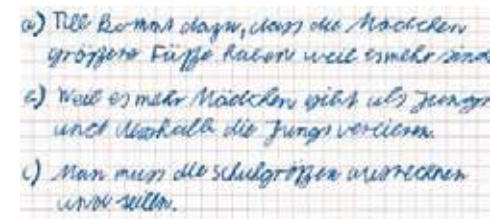 a) Till kommt dazu, dass die Mädchen
größere Füße haben weil es mehr sind
b) Weil es mehr Mädchen gibt als Jungs
und deshalb die Jungs verlieren.
c) Man muss die schulgrößen ausrechnen
und teilen.